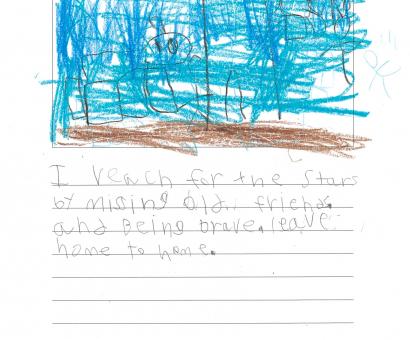 I reach for the stars
by mising old friends
and Being brave. leave
home to home.